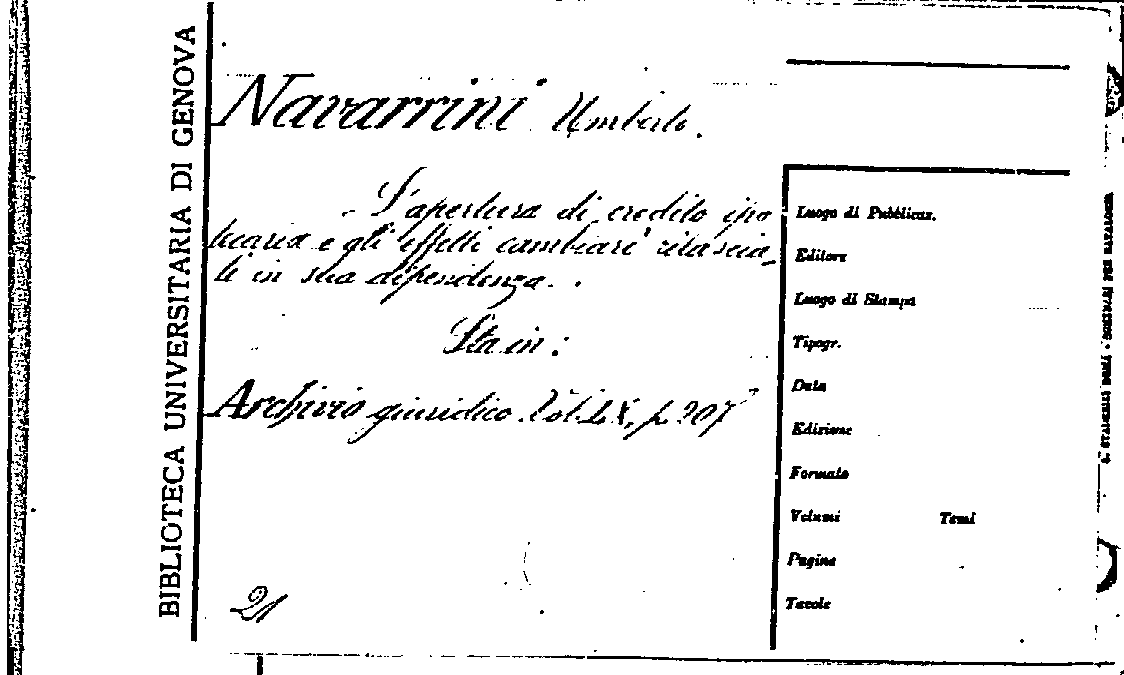 BIBLIOTECA UNIVERSITARIA DI GENOVA
Navarrini Umberto.
L'apertura di credito ipo
tecaria e gli effetti cambiari rilascia_
ti in sua dipendenza.
Sta in:
Archivio giuridico. Vol. LX, p. 207
21
Luogo di Pubblicaz.
Editore
Luogo di Stampa
Tipogr.
Data
Edizione
Formato
Volumi Tomi
Pagine
Tavole